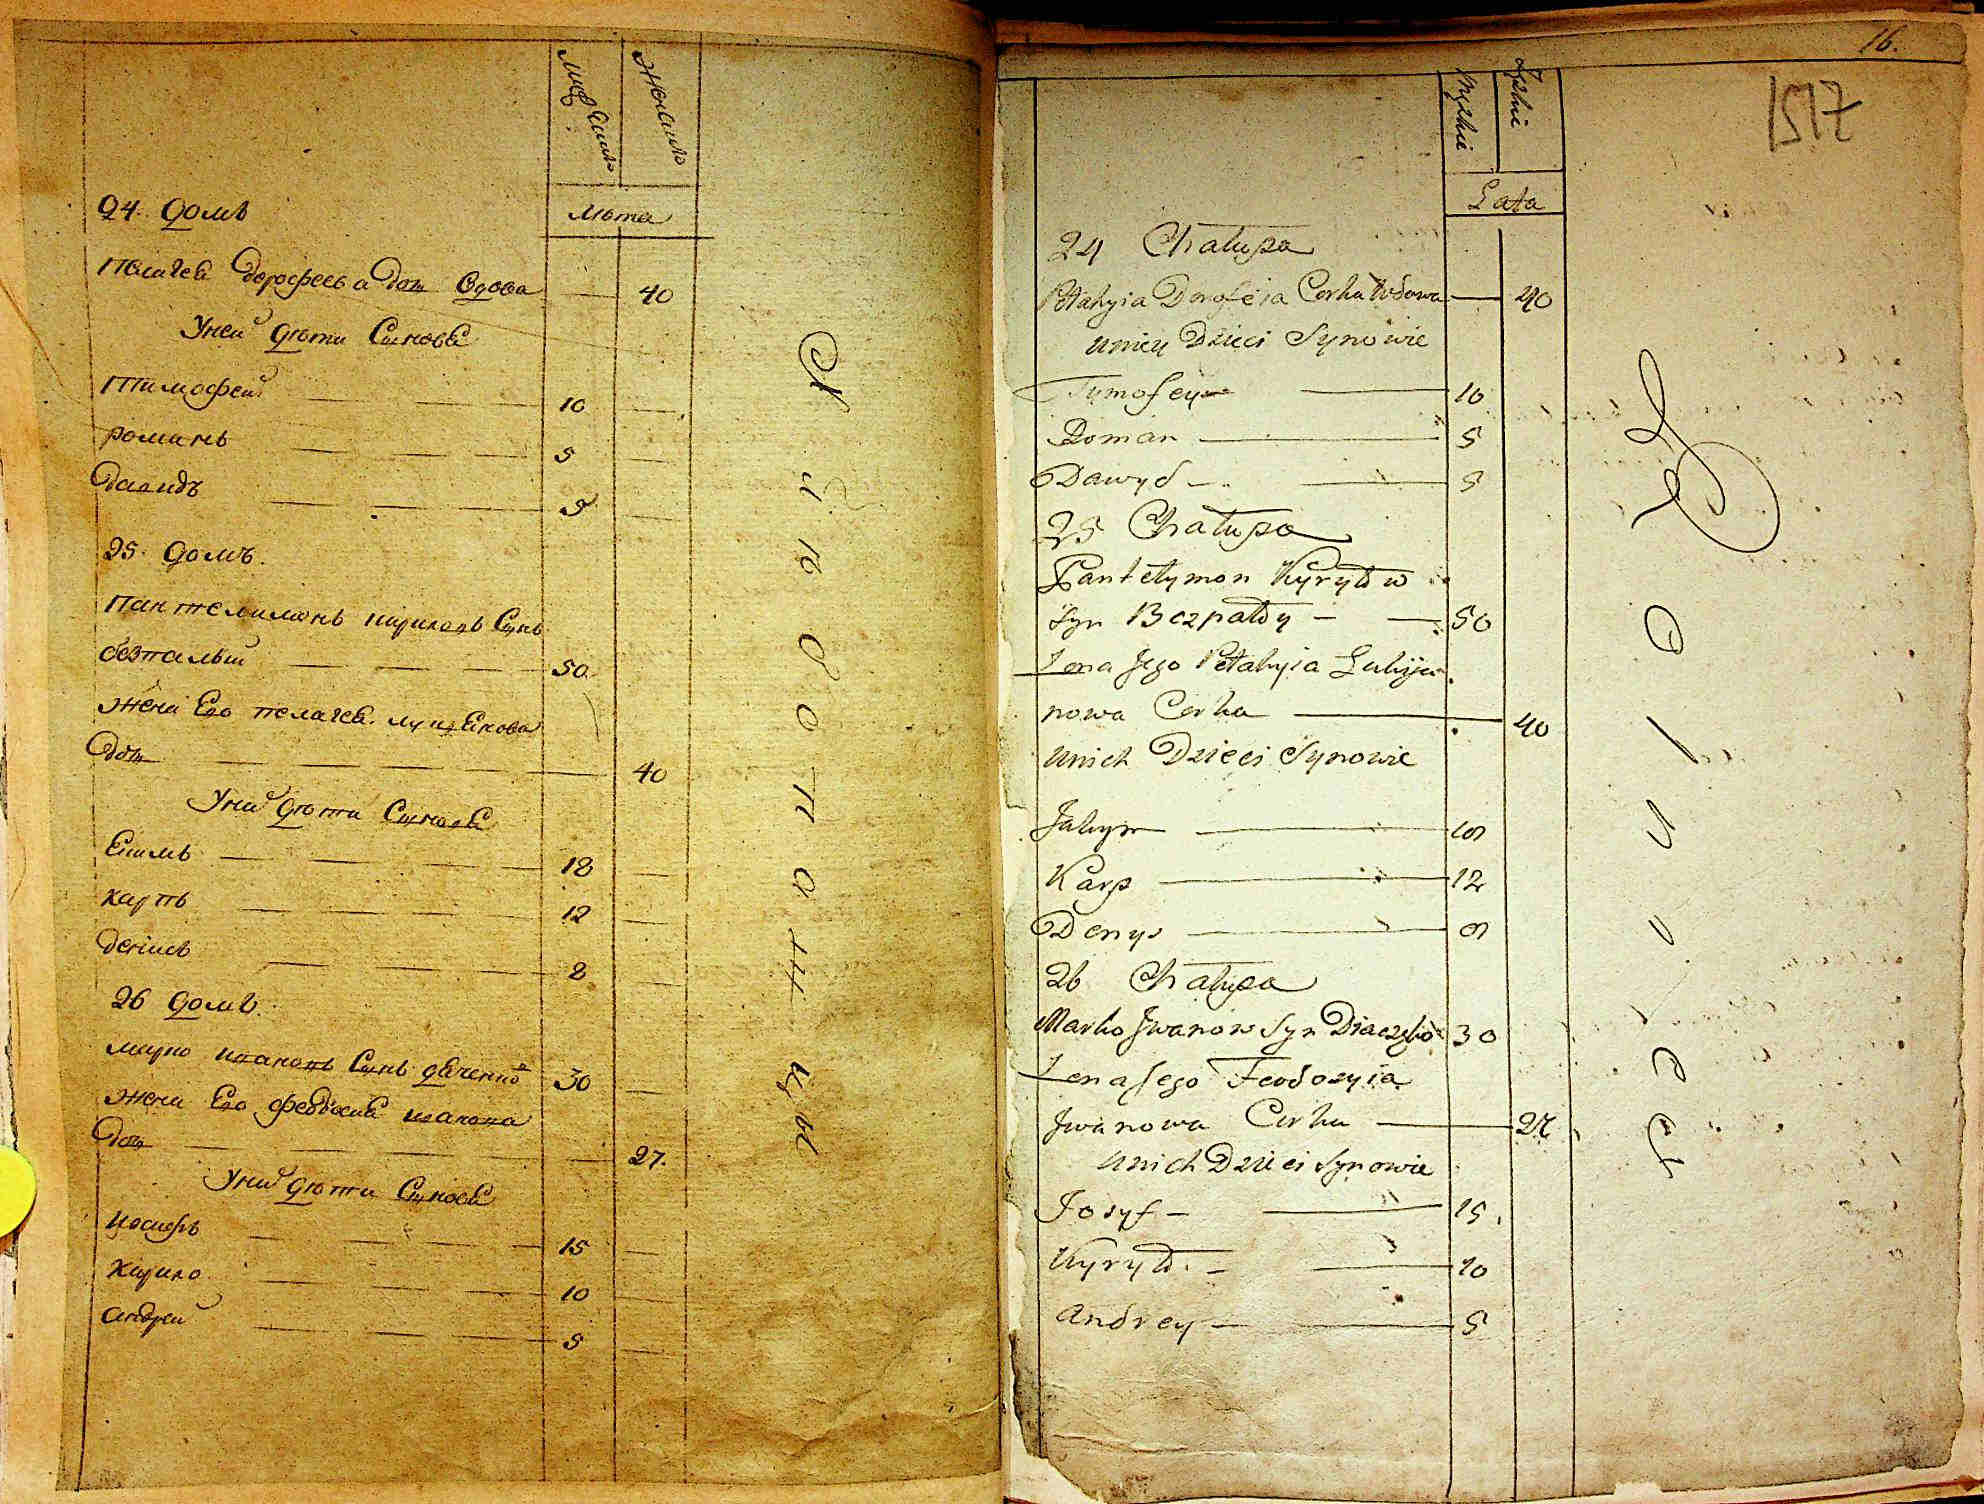 Мужеска
Женска
Лѣта
24. домъ
Пелагея дорофеева дощ вдова — 40
У неи дѣти Синове
Тимофей — 10
романъ — 5
Давидъ — 5
25. домъ.
Пантелимонъ кириловъ Синъ
безпалый — 50.
жена Его пелагея лукіянова
дощ — 40
У них дѣти Синове
Екимъ — 18
карпъ — 12
денисъ — 8
26 домъ.
марко ивановъ Синъ дяченко 30
жена Его феодосия иванова
дощ — 27.
У них дѣти Синове
иосифъ — 15
кирило — 10
андрей — 5
16.
1517
Męzkie
Żeńskie
Lata
24 Chałupa
Pełahyia Dorofeia Corka wdowa — 40
uniey Dzieci Synowie
Tymofey — 10
Roman — 5
Dawyd — 5
25 Chałupa
Pantełymon Kyryłow
syn Bezpałży — 50
Żona Jego Pełahyia Lukija
nowa Corka — 40
unich Dzieci Synowie
Jakym —
Karp — 12
Denys — 8
26 Chałupa
Marko Jwanow syn Diaczęko 30
Żona Jego Feodosyia
Jwanowa Corka — 27
unich Dzieci Synowie
Josyf — 15.
Kyryło — 10
Andrey — 5